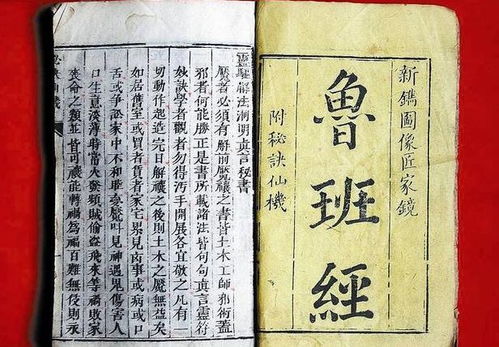 新鐫圖像匠家鏡
魯班經
附秘訣仙機
靈驅解法洞明真言秘書
魘者必須有解前魘禳之書皆土木工師邪術蓋
邪者何能勝正是書所載諸法皆句句真言靈符
妙訣學者觀者勿得汚手開展各宜敬之凡有一
切動作起造完日解禳之後則土木之魘無益矣
如居舊室或買者賃者家宅累見凶事或病或口
舌或爭訟家中不和睡臺魘叫見神遇鬼傷害人
口生意淡薄時常火發頻賊偷盜飛來等禍敗家
喪命之類並皆可禳能轉禍為福百難無侵則永